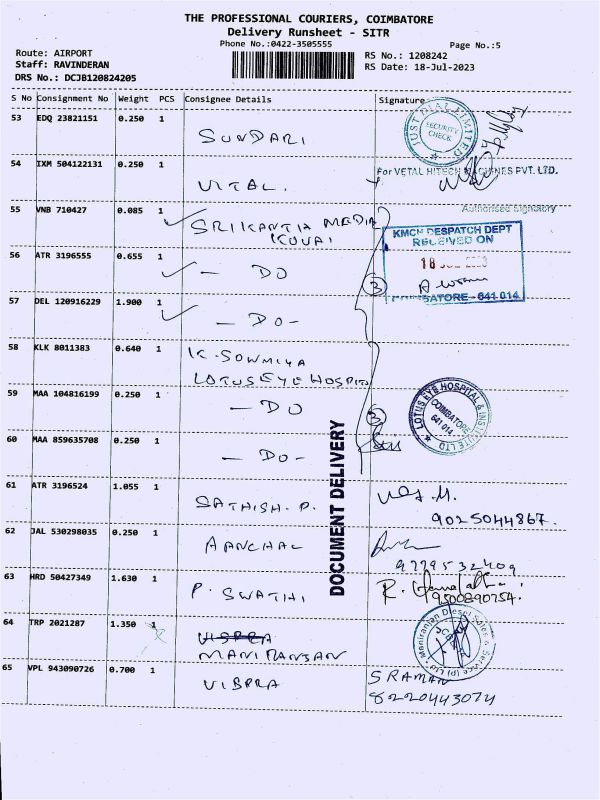 THE PROFESSIONAL COURIERS, COIMBATORE
Delivery Runsheet - SITR
Phone No.:0422-3505555
Page No.:5
Route: AIRPORT
Staff: RAVINDERAN
DRS No.: DCJB120824205
RS No.: 1208242
RS Date: 18-Jul-2023
S No Consignment No Weight PCS Consignee Details Signature
53 EDQ 23821151 0.250 1 SUNDARI
JUST DIAL LIMITED
SECURITY CHECK
54 IXM 504122131 0.250 1 VITAL.
For VETAL HITECH MACHINES PVT. LTD.
Authorised Signatory
55 VNB 710427 0.085 1 SRIKANTH MEDIA
KOVAI
KMCH DESPATCH DEPT
RECEIVED ON
18
COIMBATORE-641 014
56 ATR 3196555 0.655 1 - DO
3
57 DEL 120916229 1.900 1 - DO -
58 KLK 8011383 0.640 1 K. SOWMIYA
LOTUS EYE HOSPITAL
59 MAA 104816199 0.250 1 - DO
3
LOTUS EYE HOSPITAL & INSTITUTE LTD
COIMBATORE
641 014
60 MAA 859635708 0.250 1 - DO -
DOCUMENT DELIVERY
61 ATR 3196524 1.055 1 SATHISH. P.
9025044867.
62 JAL 530298035 0.250 1 AANCHAL
9779532409
63 HRD 50427349 1.630 1 P. SWATHI
9500890754.
64 TRP 2021287 1.350 1 VIBRRA
MANIRANJAN
65 VPL 943090726 0.700 1 VIBRRA
S RAMAN
8220443074